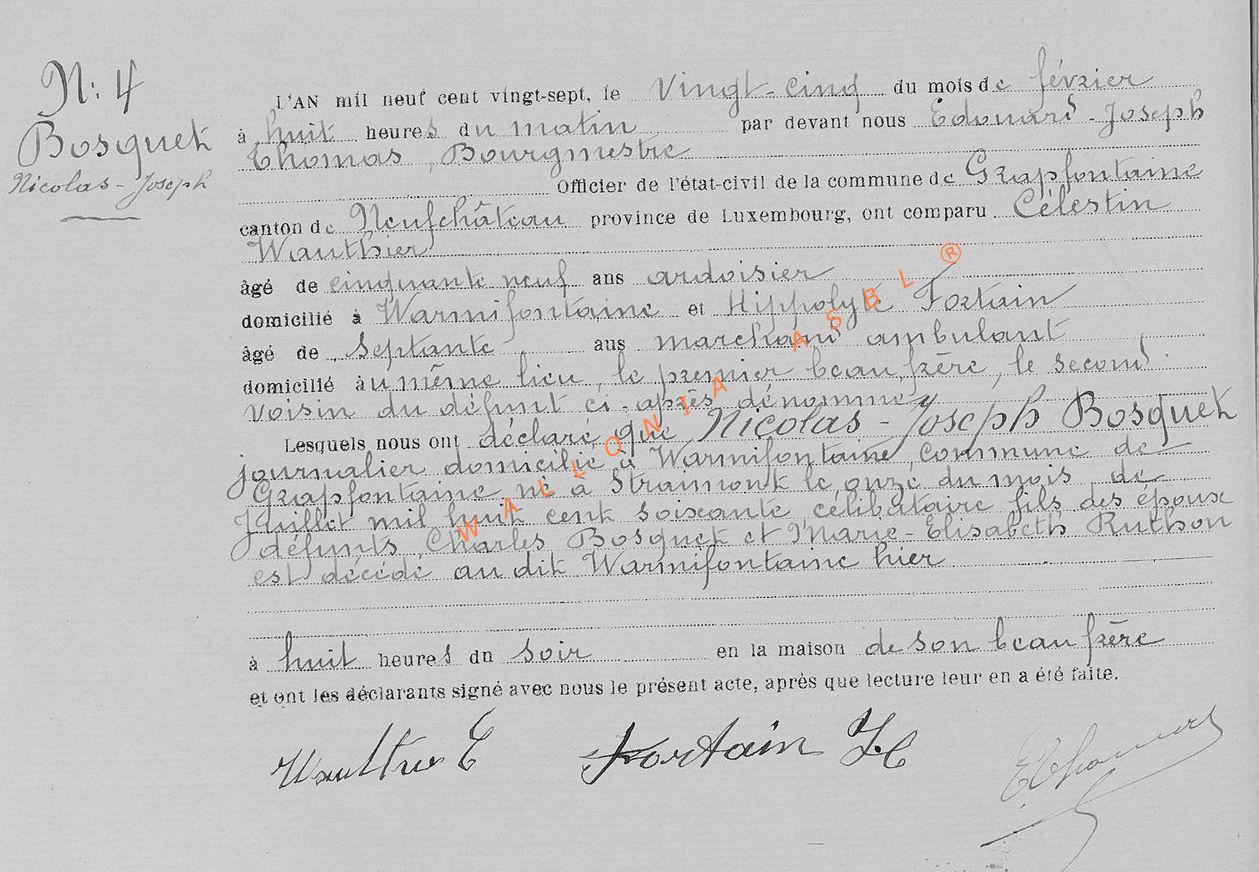 N: 4
Bosquet
Nicolas-Joseph
L'AN mil neuf cent vingt-sept, le vingt-cinq du mois de février
à huit heures du matin par devant nous Edouard-Joseph
Thomas, Bourgmestre
Officier de l'état-civil de la commune de Grapfontaine
canton de Neufchâteau province de Luxembourg, ont comparu Célestin
Wauthier
âgé de cinquante neuf ans ardoisier
domicilié à Warmifontaine et Hippolyte Fortain
âgé de septante ans marchand ambulant
domicilié au même lieu, le premier beau frère, le second
voisin du défunt ci-après dénommé,
Lesquels nous ont déclaré que Nicolas-Joseph Bosquet
journalier domicilié à Warmifontaine, commune de
Grapfontaine né à Straimont le onze du mois de
Juillet mil huit cent soixante, célibataire fils des époux
défunts Charles Bosquet et Marie-Elisabeth Ruthon
est décédé au dit Warmifontaine hier
à huit heures du soir en la maison de son beau frère
et ont les déclarants signé avec nous le présent acte, après que lecture leur en a été faite.
Fortain H
EThomas
WALLONIA ASBL ®